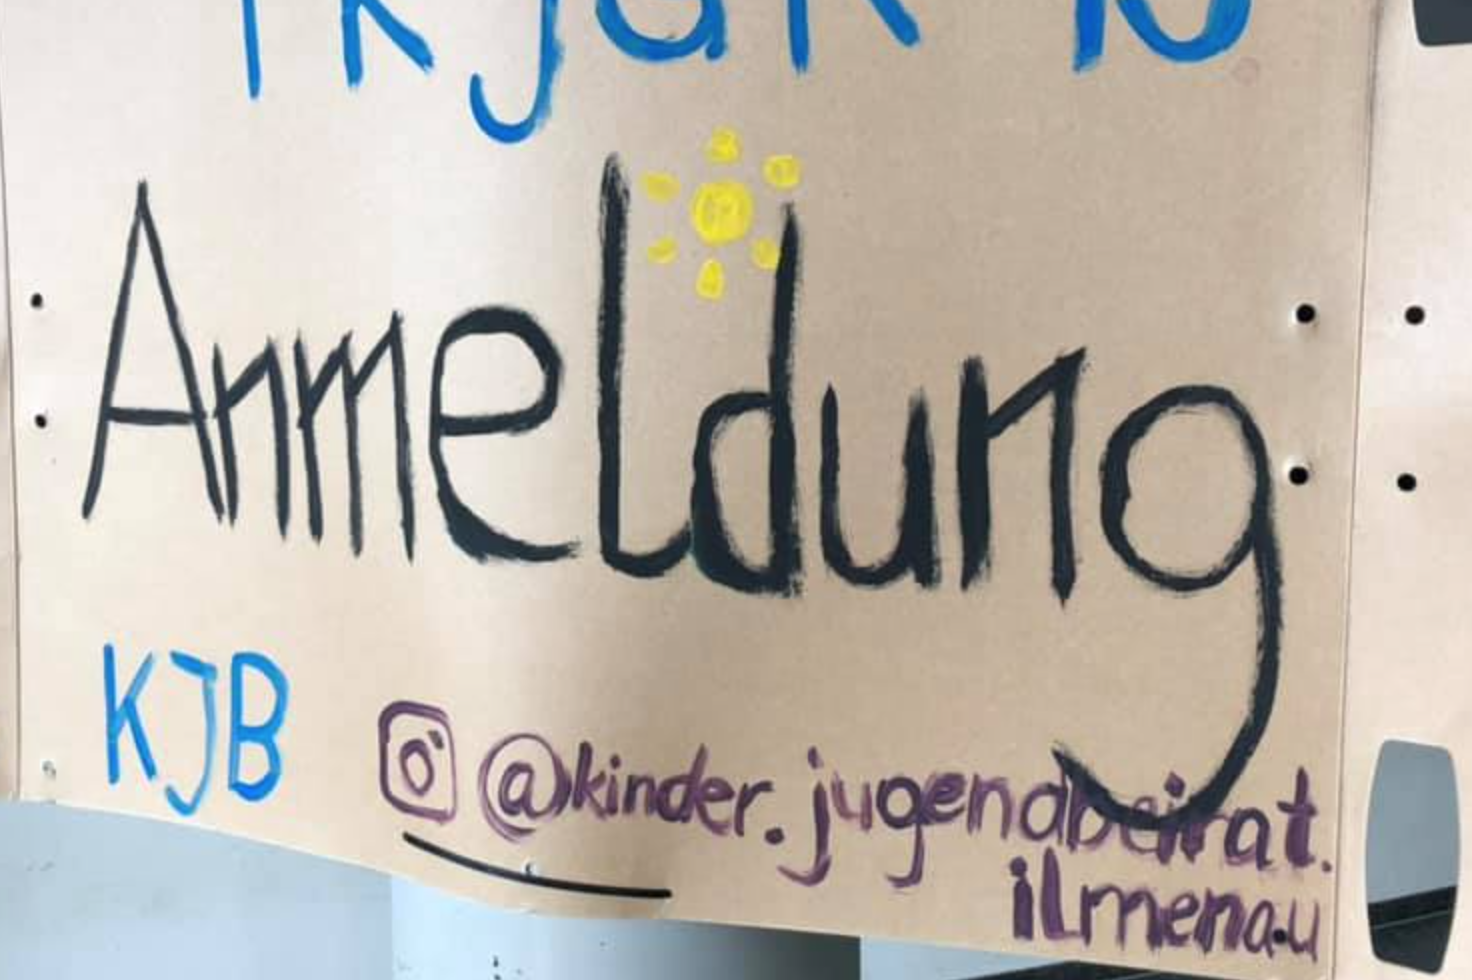 Anmeldung
KJB @kinder.jugendbeirat.
ilmenau